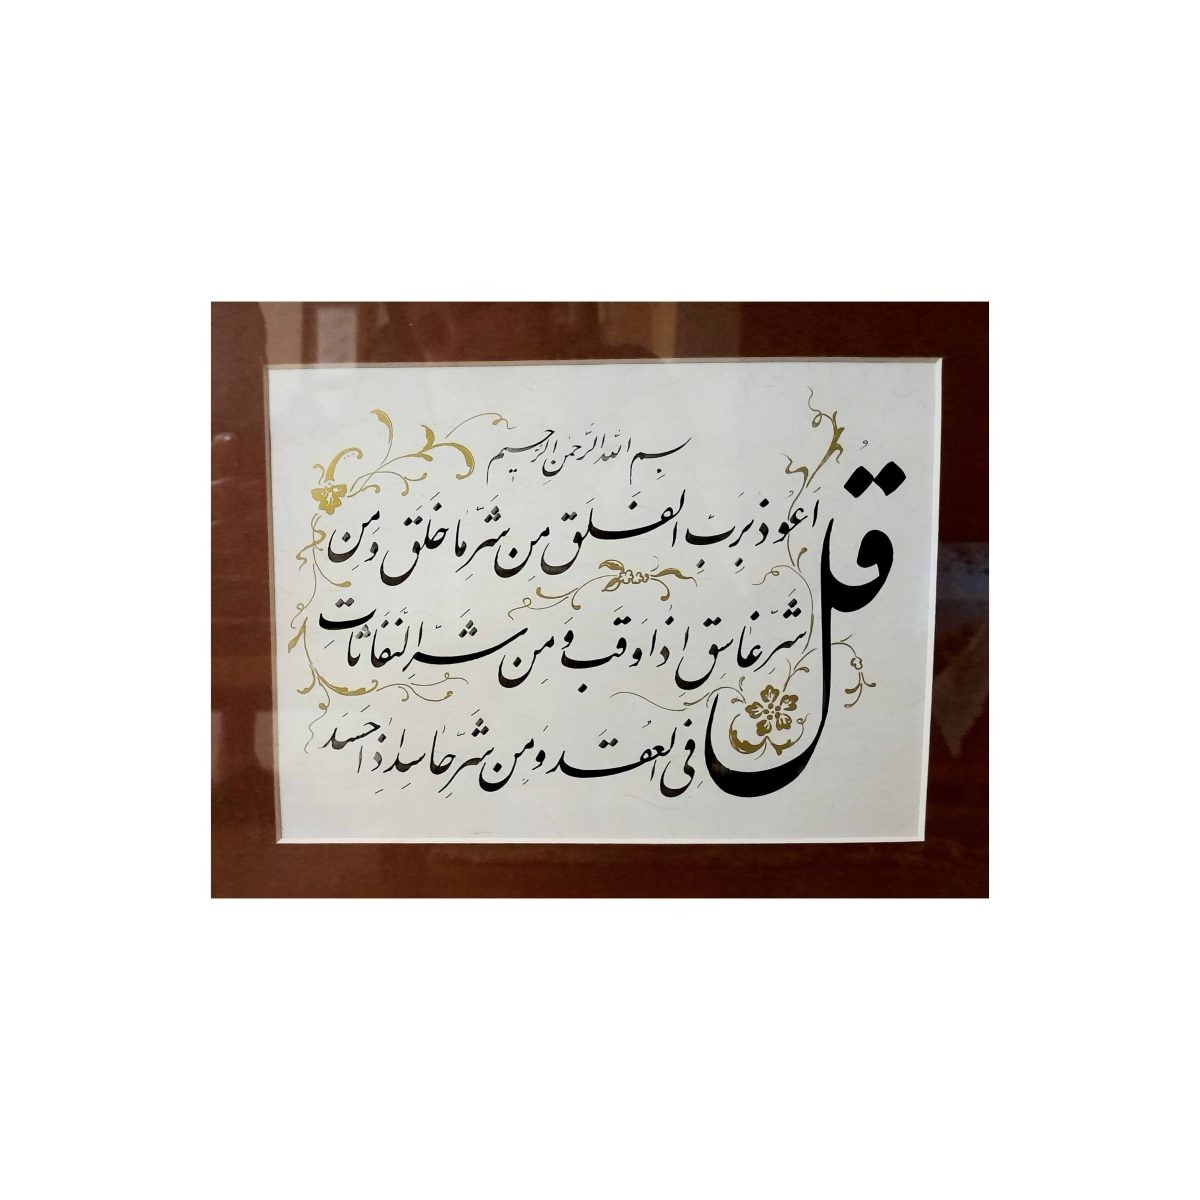 بسم الله الرحمن الرحیم
قُل اَعوُذ بِرَبِّ الفَلَق مِن شَرِّ ما خَلَق وَ مِن
شَرِّ غاسِقٍ اِذا وَقَب وَ مِن شَرِّ النَّفّاثاتِ
فِی العُقَد وَ مِن شَرِّ حاسِدٍ اِذا حَسَد